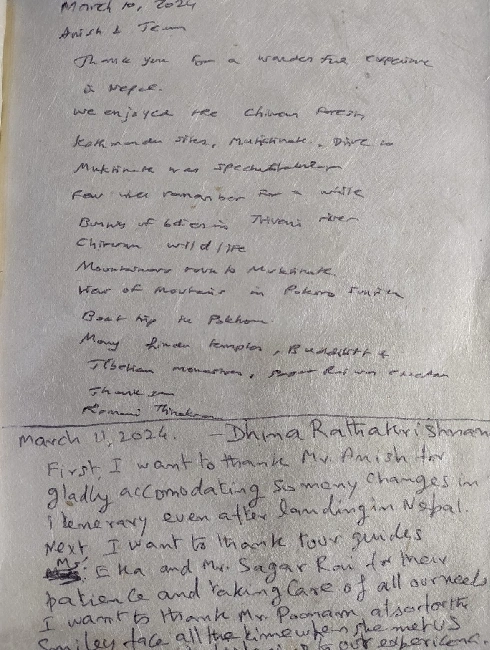 March 10, 2024
Anish & Team
Thank you for a wonderful experience
in Nepal.
We enjoyed the Chitwan Forest,
Kathmandu sites, Muktinath. Drive to
Muktinath was
Few will remember for a while
of in Triveni river
Chitwan wild life
Mountainous route to Muktinath.
View of mountains in Pokora
Boat trip in Pokhara
Many hindu temples, Buddhist &
Tibetan
Thank you
March 11, 2024. - Dhina Rathakrishnan
First, I want to thank Mr. Anish for
gladly accomodating so many changes in
itenerary even after landing in Nepal.
Next, I want to thank tour guides
Eka and Mr. Sagar Rai for their
patience and taking care of all our needs
I want to thank Mr. Poonam also for the
Smiley face all the time when she met us
to our experience.